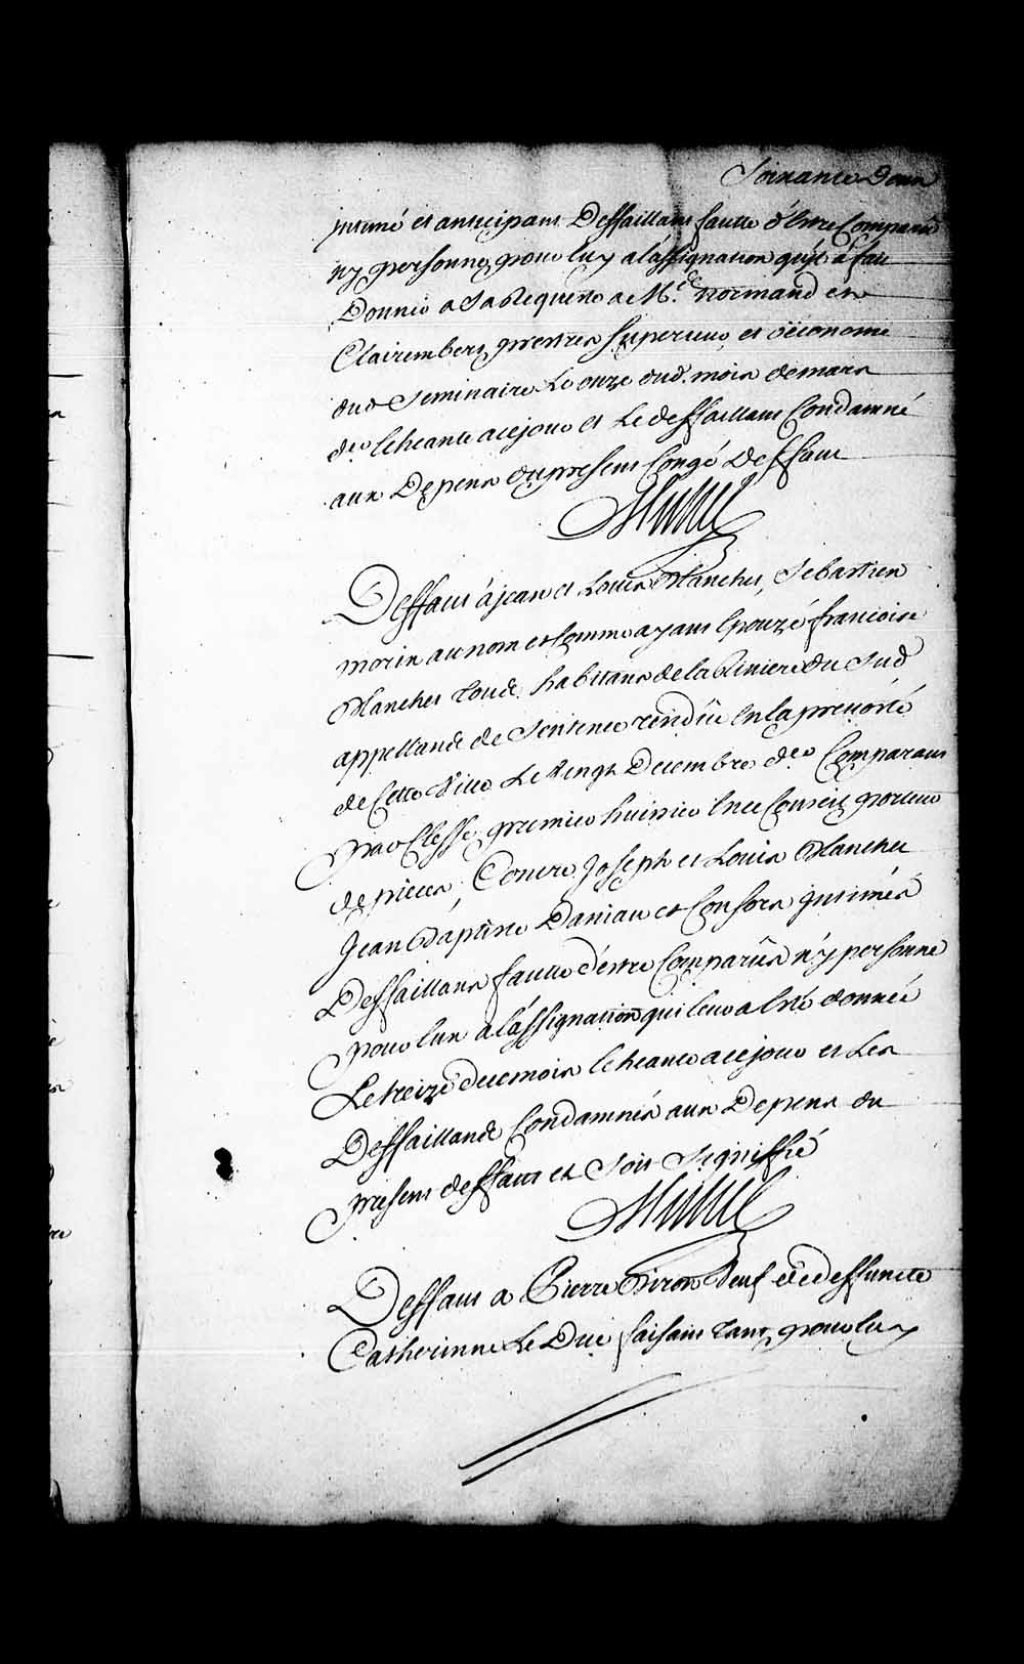 Soixante Deux
jntimé et anticipant Deffaillant fautte d'Estre Comparu
ny personne pour luy a l'assignation qu'il a fait
Donner a Sa Requeste a Mrs. normand et
Clairembert prestres Superieur et oëconome
dud Seminaire Le onze dud. mois de mars
der Echeante a ce jour et Le deffaillant Condamné
aux Depens du present Congé Deffaut
Deffaut à jean et Louis Blanchet, Sebastien
morin au nom et Comme ayant Epouzé francoise
Blanchet tous habitans de la Riviere du Sud
appellands de Sentence rendüe En la prevosté
de Cette Ville Le Vingt Decembre der Comparant
par Clesse premier huissier En ce Conseil porteur
de pieces, Contre Joseph et Louis Blanchet
Jean Baptiste Daniau et Consors jntimés
Deffaillans fautte d'estre Comparûs n'y personne
pour Eux a l'assignation qui leur a Esté donnée
Le treize de ce mois Echeante a ce jour et Les
Deffaillands Condamnés aux Depens du
present deffaut et Soit Signiffié
Deffaut a Pierre Biron Veuf de deffuncte
Catherinne Le Duc faisant tant pour luy